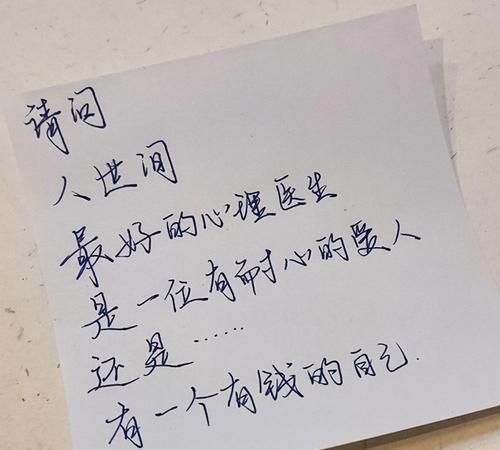 请问
人世间
最好的心理医生
是一位有耐心的爱人
还是……
有一个有钱的自己.